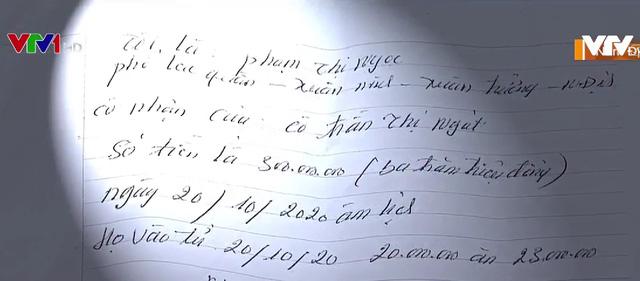 VTV1 HD
VTV
Tôi là phạm thị Ngọc
phố lạc quần - xuân ninh - xuân trường - N.Định
có nhận của cô trần thị ngát
Số tiền là 300.000.000 (ba trăm triệu đồng)
ngày 20/10/2020 âm lịch
Họ vào từ 20/10/20 20.000.000 ăn 23.000.000